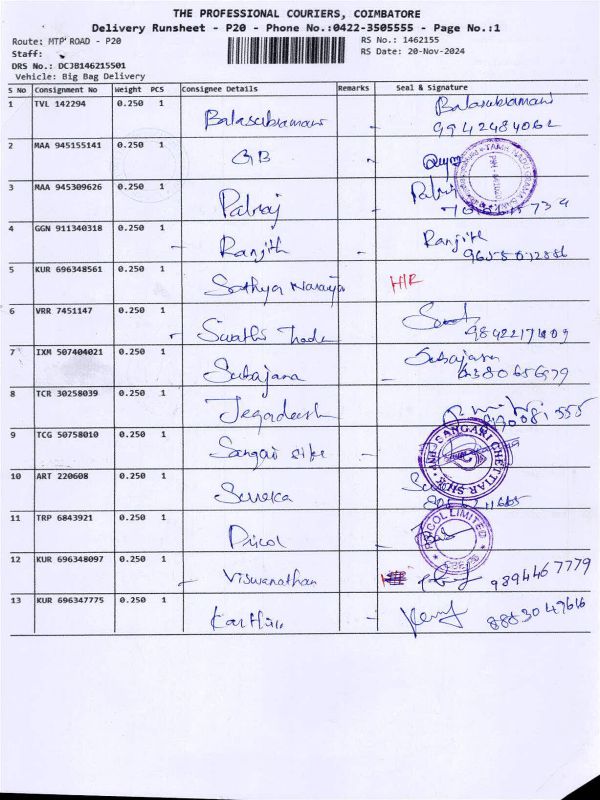 THE PROFESSIONAL COURIERS, COIMBATORE
Delivery Runsheet - P20 - Phone No.:0422-3505555 - Page No.:1
Route: MTP ROAD - P20 RS No.: 1462155
Staff: RS Date: 20-Nov-2024
DRS No.: DCJB146215501
Vehicle: Big Bag Delivery
S No Consignment No Weight PCS Consignee Details Remarks Seal & Signature
1 TVL 142294 0.250 1 Balasubramani Balasubramani
9942484062
2 MAA 945155141 0.250 1 GB
TAMIL NADU GRAMA
3 MAA 945309626 0.250 1 Palraj Palraj
4 GGN 911340318 0.250 1 Ranjith Ranjith
5 KUR 696348561 0.250 1 Sathya Narayan H/R
6 VRR 7451147 0.250 1 Swathi Trade
7 IXM 507404021 0.250 1 Subajana Subajana
8 TCR 30258039 0.250 1 Jegadeesh
9 TCG 50758010 0.250 1
ANGUSANGARI CHETTIAR
10 ART 220608 0.250 1
11 TRP 6843921 0.250 1 Pricol
PRICOL LIMITED
12 KUR 696348097 0.250 1 Viswanathan 9394467779
13 KUR 696347775 0.250 1 Karthik 8883049616